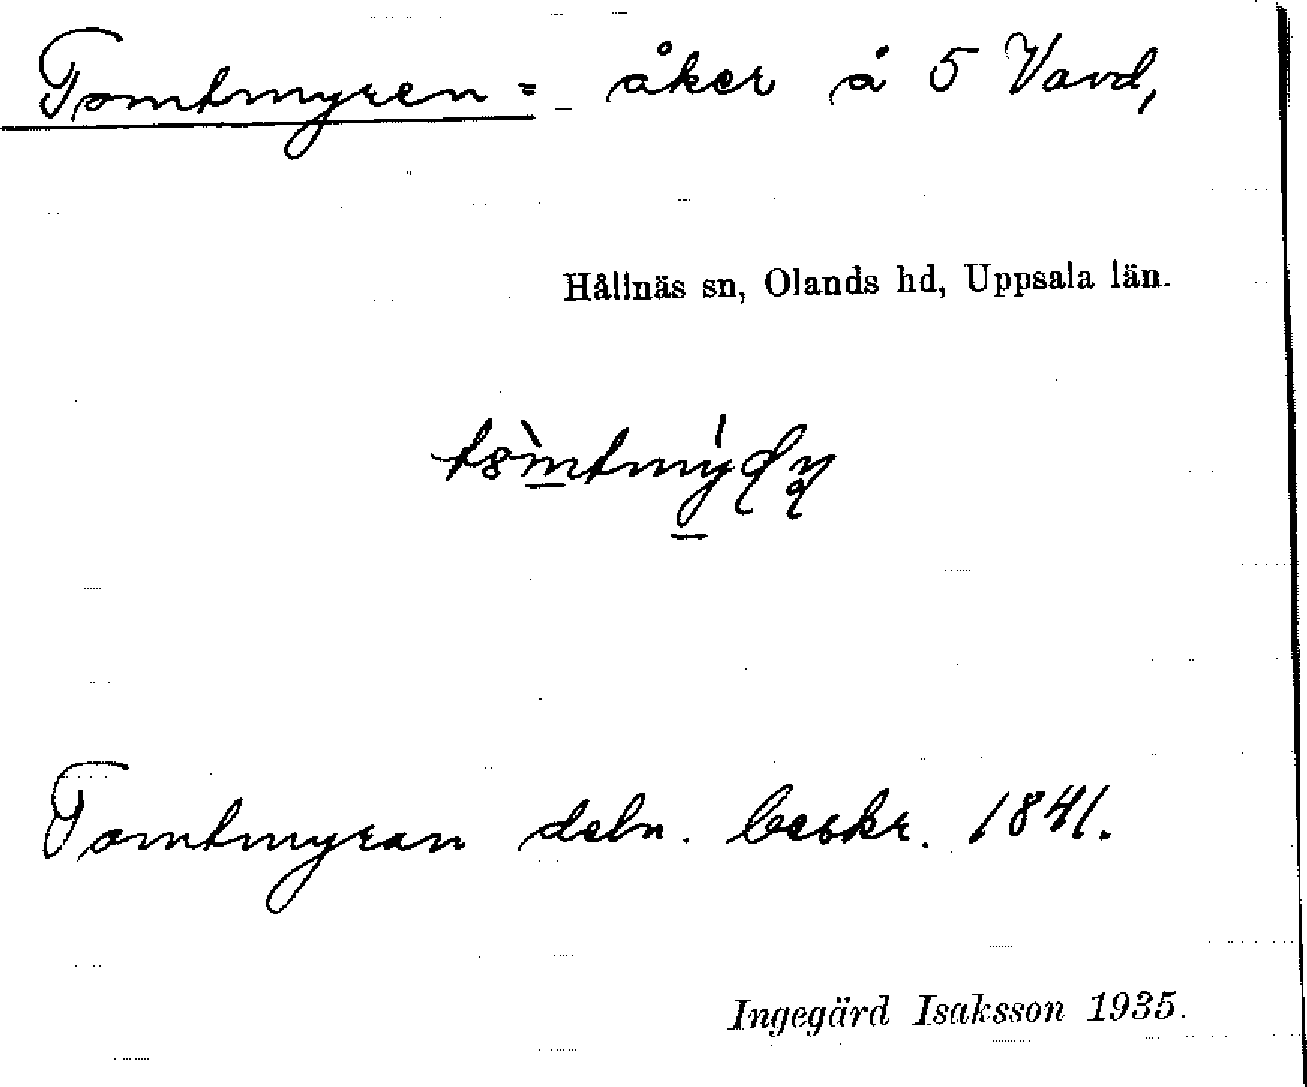 Tomtmyren = åker å 5 Vavd,
Hållnäs sn, Olands hd, Uppsala län.
Tomtmyran deln. beskr. 1841.
Ingegärd Isaksson 1935.